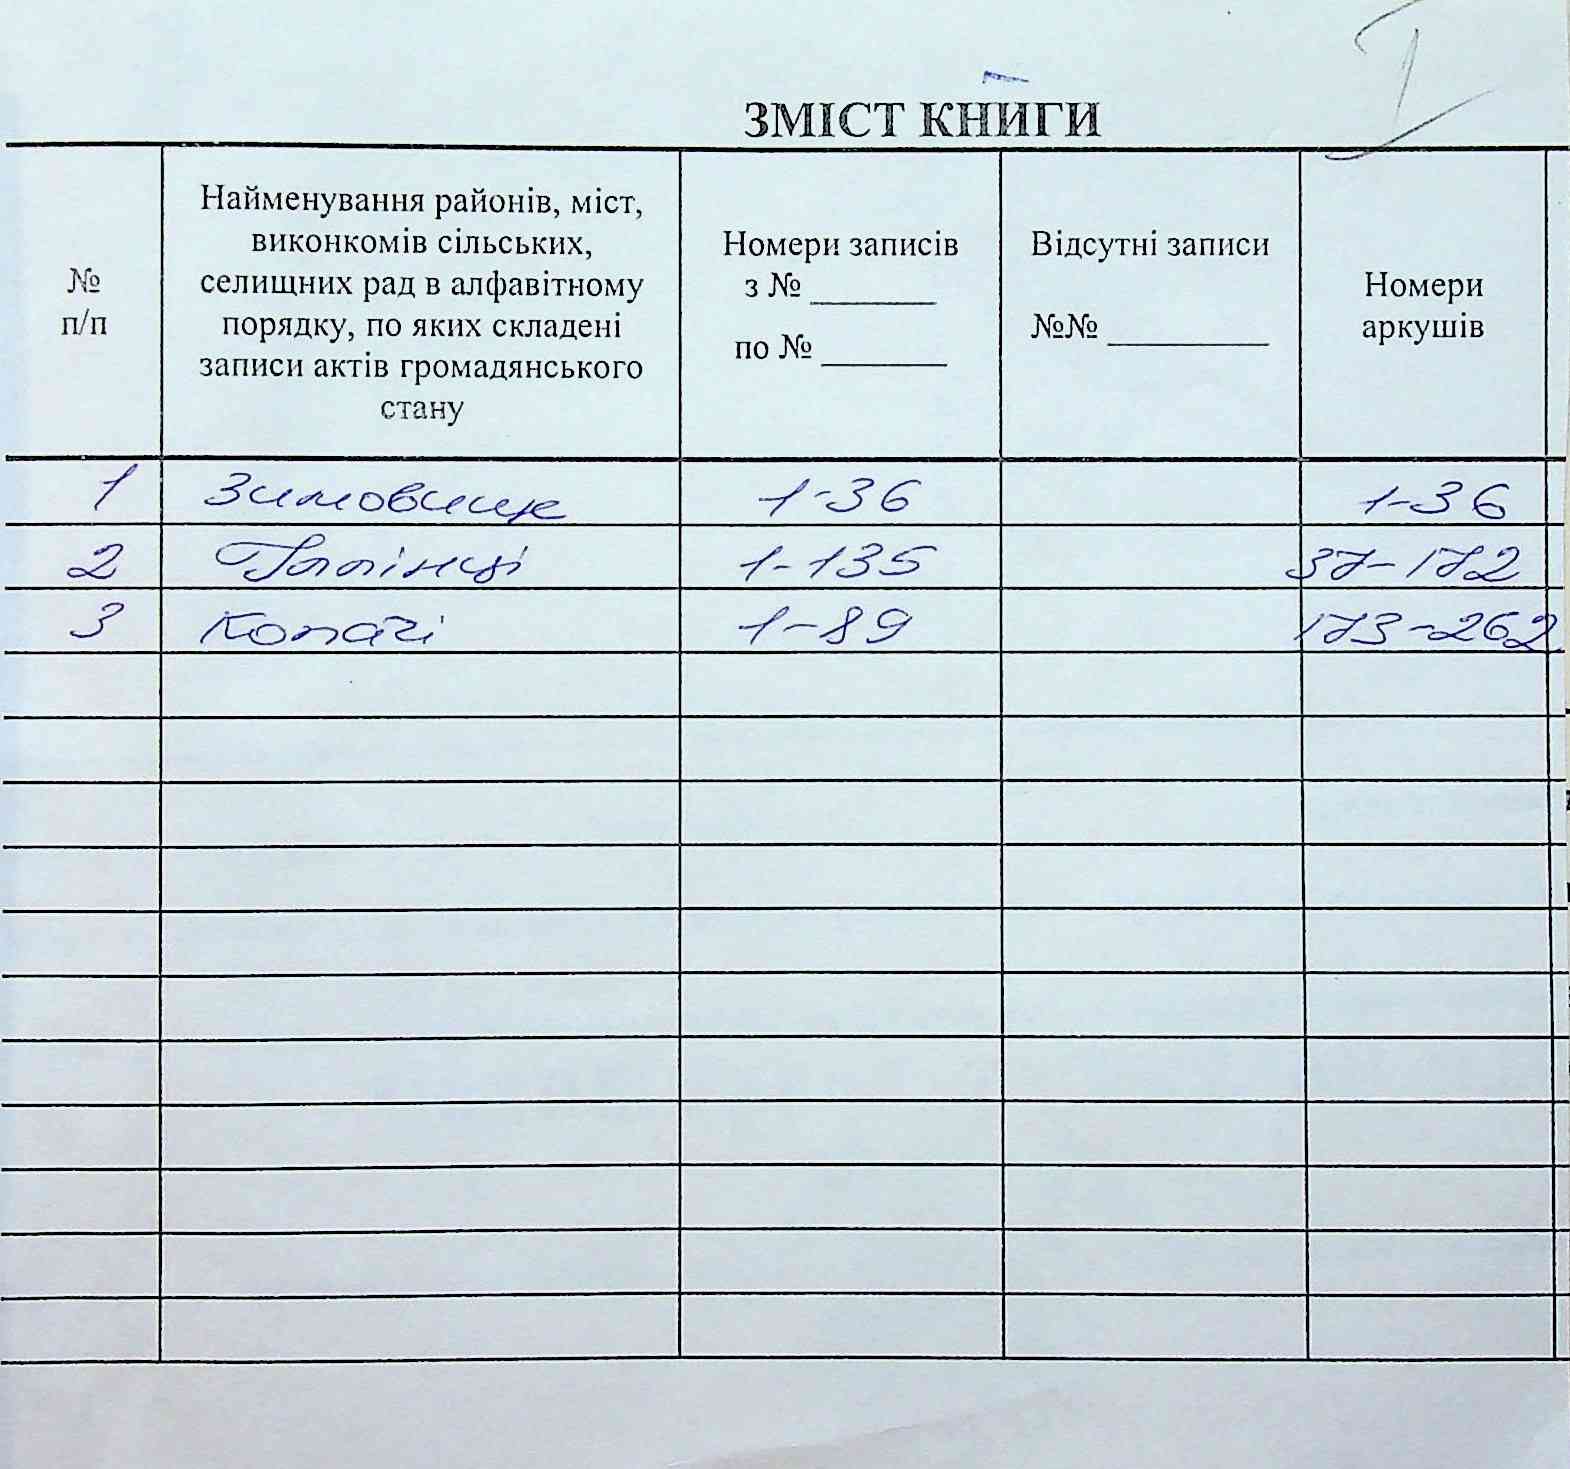 I
ЗМІСТ КНИГИ
№ п/п
Найменування районів, міст,
виконкомів сільських,
селищних рад в алфавітному
порядку, по яких складені
записи актів громадянського
стану
Номери записів
з № ________
по № ________
Відсутні записи
№№ __________
Номери
аркушів
1 Зимовище 1-36 1-36
2 Іллінці 1-135 37-172
3 Копачі 1-89 173-262